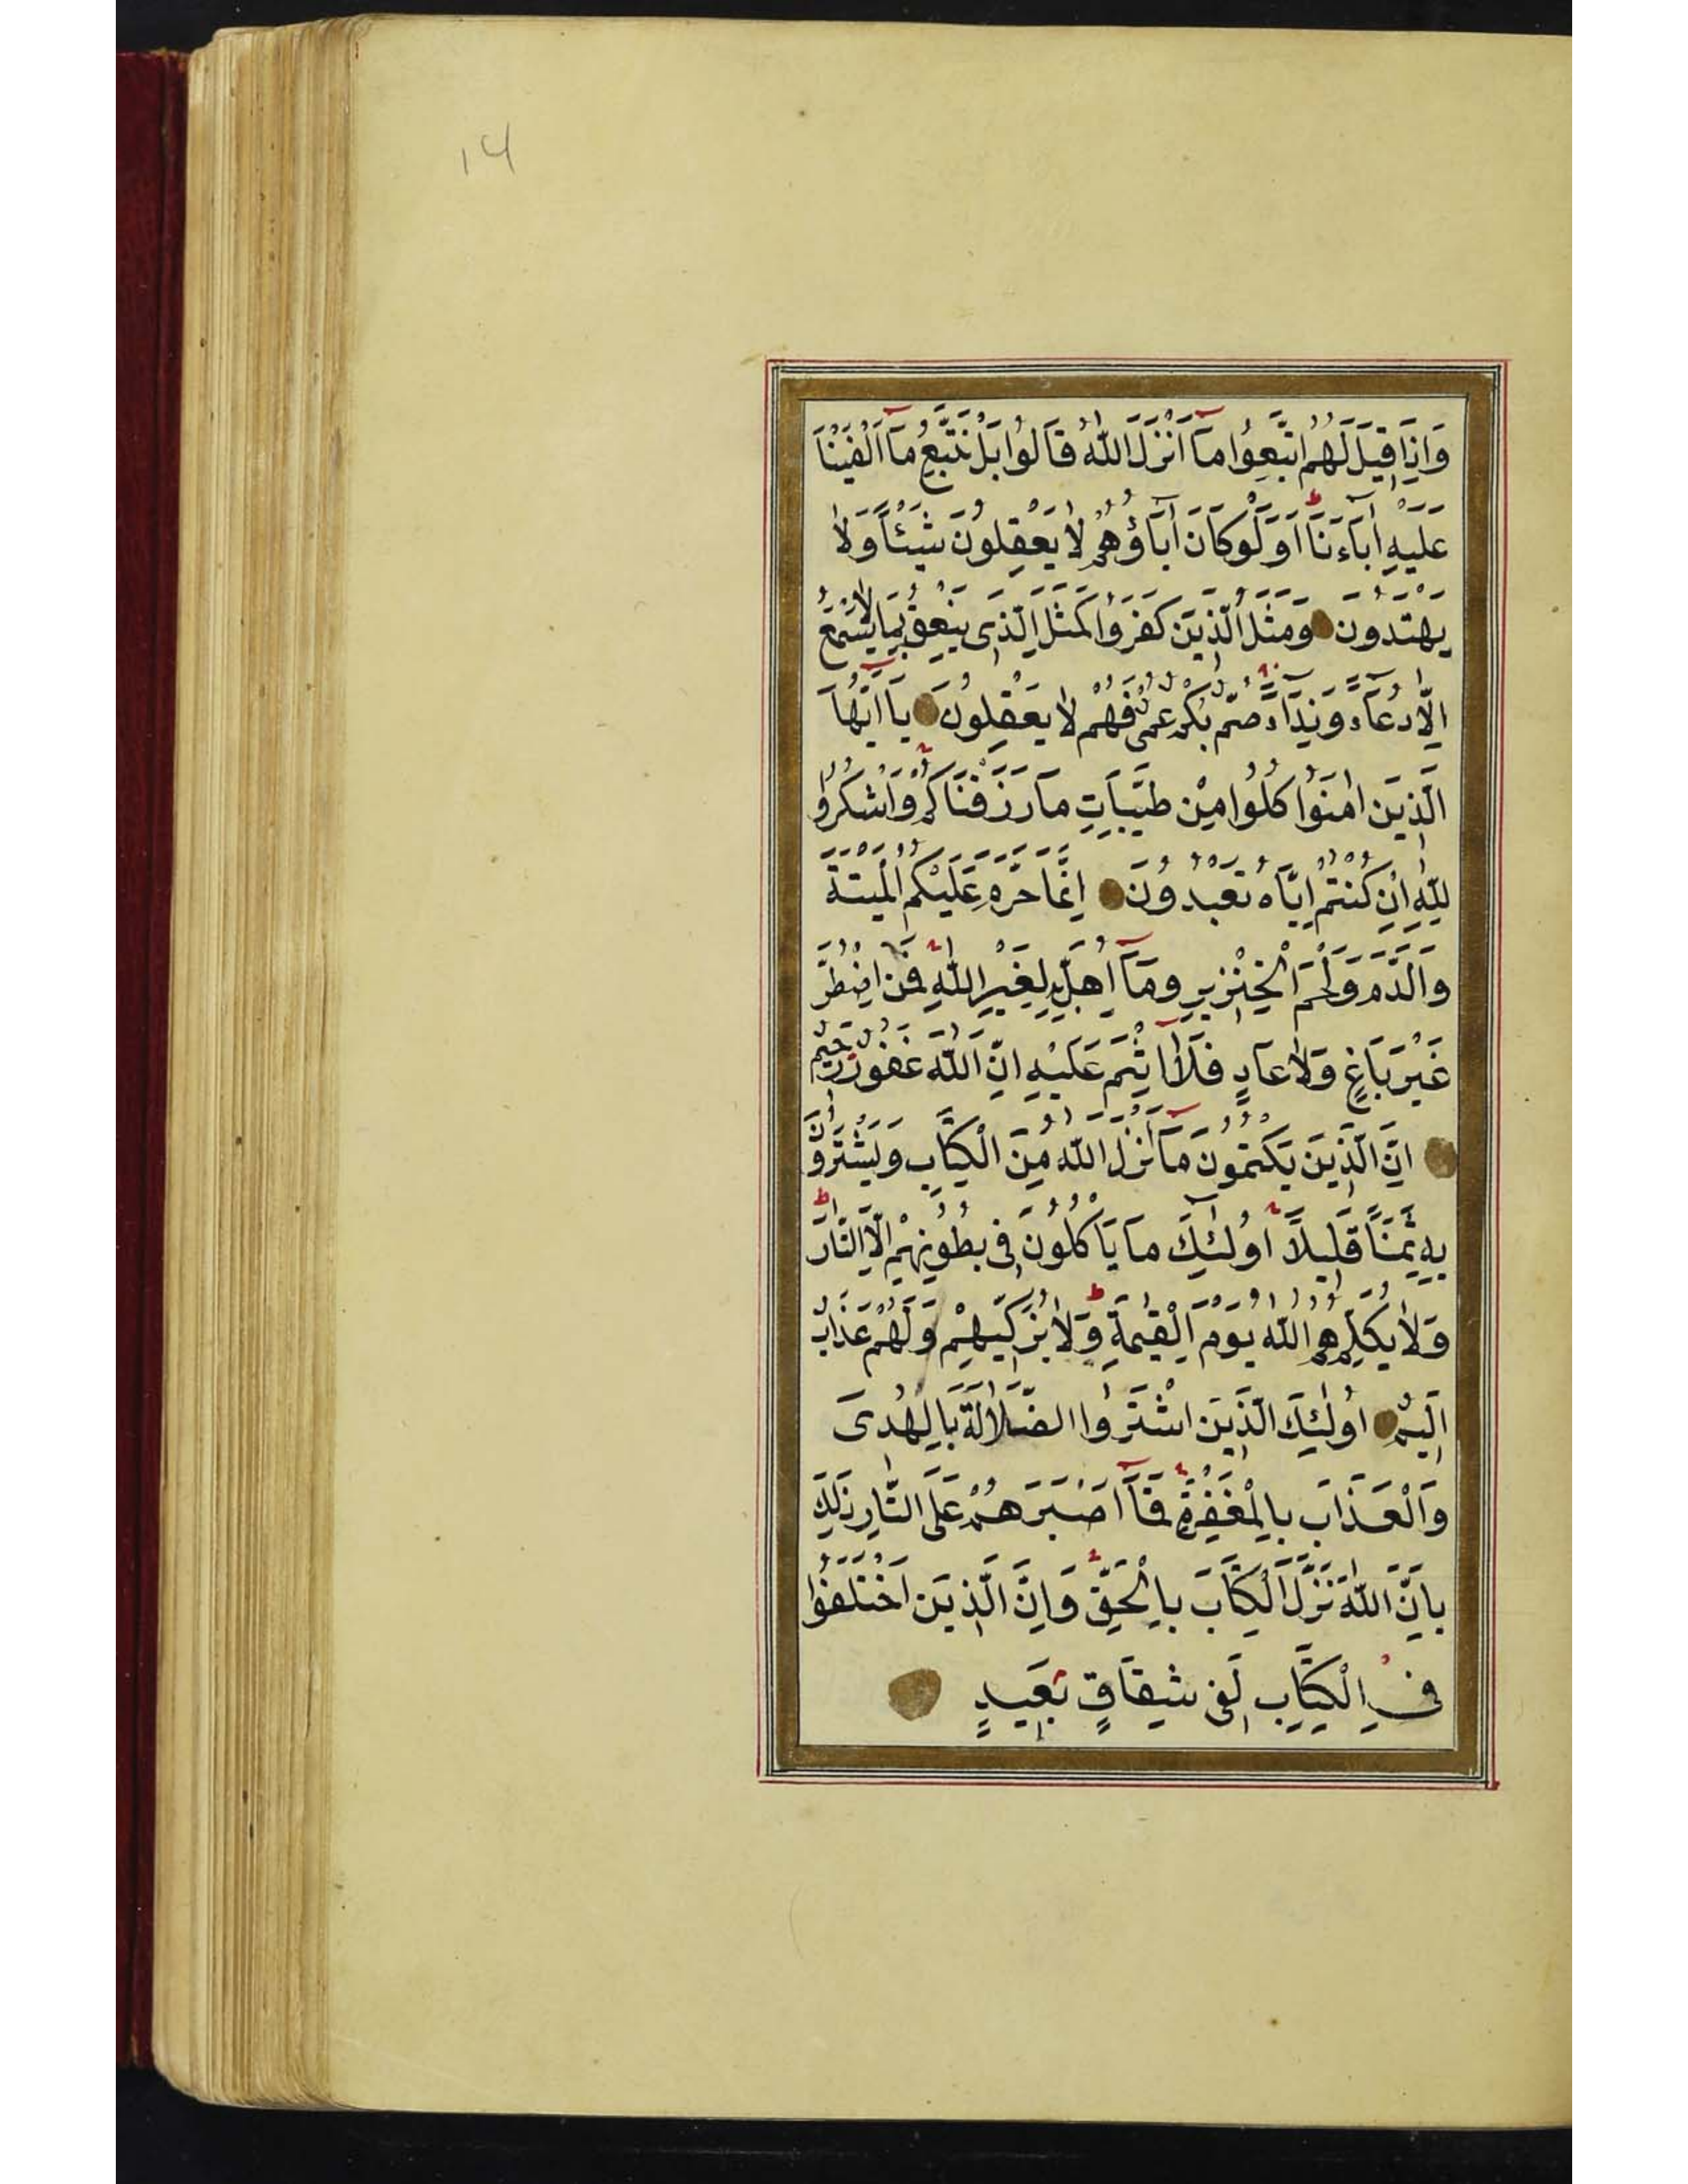 ١٤
وَاِذَا قِيلَ لَهُمُ اتَّبِعُوا مَآ اَنْزَلَ اللّٰهُ قَالُوا بَلْ نَتَّبِعُ مَآ اَلْفَيْنَا
عَلَيْهِ اٰبَآءَنَا اَوَلَوْ كَانَ اٰبَآؤُهُمْ لَا يَعْقِلُونَ شَيْئًا وَلَا
يَهْتَدُونَ وَمَثَلُ الَّذِينَ كَفَرُوا كَمَثَلِ الَّذِى يَنْعِقُ بِمَا لَا يَسْمَعُ
اِلَّا دُعَآءً وَنِدَآءً صُمٌّ بُكْمٌ عُمْىٌ فَهُمْ لَا يَعْقِلُونَ يَآ اَيُّهَا
الَّذِينَ اٰمَنُوا كُلُوا مِنْ طَيِّبَاتِ مَا رَزَقْنَاكُمْ وَاشْكُرُوا
لِلّٰهِ اِنْ كُنْتُمْ اِيَّاهُ تَعْبُدُونَ اِنَّمَا حَرَّمَ عَلَيْكُمُ الْمَيْتَةَ
وَالدَّمَ وَلَحْمَ الْخِنْزِيرِ وَمَآ اُهِلَّ بِهِ لِغَيْرِ اللّٰهِ فَمَنِ اضْطُرَّ
غَيْرَ بَاغٍ وَلَا عَادٍ فَلَآ اِثْمَ عَلَيْهِ اِنَّ اللّٰهَ غَفُورٌ رَحِيمٌ
اِنَّ الَّذِينَ يَكْتُمُونَ مَآ اَنْزَلَ اللّٰهُ مِنَ الْكِتَابِ وَيَشْتَرُونَ
بِهِ ثَمَنًا قَلِيلًا اُولٰٓئِكَ مَا يَاْكُلُونَ فِى بُطُونِهِمْ اِلَّا النَّارَ
وَلَا يُكَلِّمُهُمُ اللّٰهُ يَوْمَ الْقِيٰمَةِ وَلَا يُزَكِّيهِمْ وَلَهُمْ عَذَابٌ
اَلِيمٌ اُولٰٓئِكَ الَّذِينَ اشْتَرَوُا الضَّلَالَةَ بِالْهُدٰى
وَالْعَذَابَ بِالْمَغْفِرَةِ فَمَآ اَصْبَرَهُمْ عَلَى النَّارِ ذٰلِكَ
بِاَنَّ اللّٰهَ نَزَّلَ الْكِتَابَ بِالْحَقِّ وَاِنَّ الَّذِينَ اخْتَلَفُوا
فِى الْكِتَابِ لَفِى شِقَاقٍ بَعِيدٍ